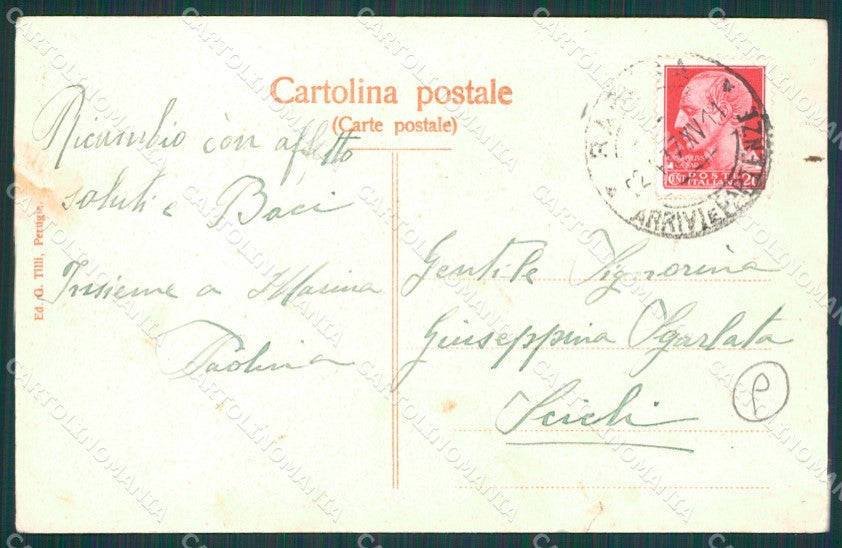 Cartolina postale
(Carte postale)
Ricambio con affetto
saluti e Baci
Insieme a Marina
Paolina
Gentile Signorina
Giuseppina Sgarlata
Scicli
Ed. G. Tilli, Perugia
POSTE
ITALIANE
CENT 20
ARRIVI E PARTENZE
CARTOLINOMANIA